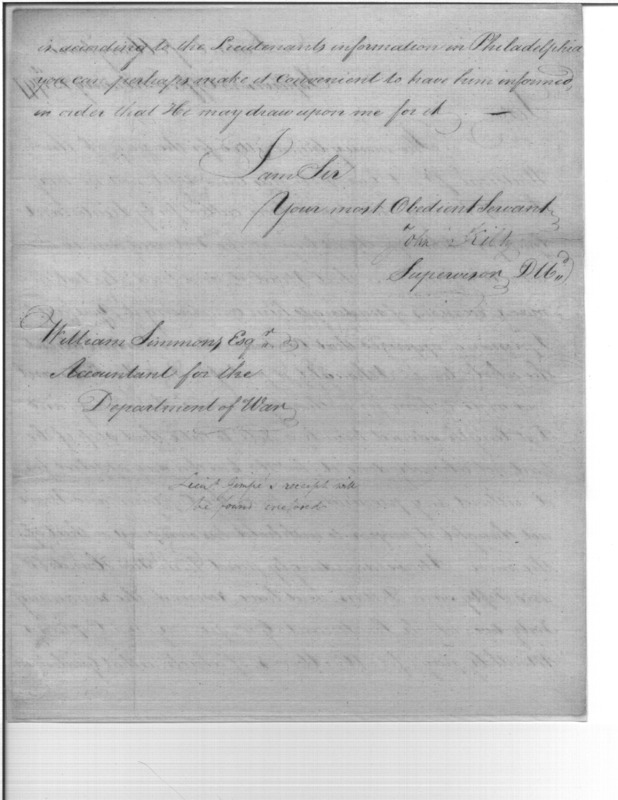 is according to the Lieutenants information in Philadelphia
you can perhaps make it convenient to have him informed,
in order that He may draw upon me for it. —
I am Sir
Your most Obedient Servant
John Kilty
Supervisor
William Simmons, Esqr.
Accountant for the
Department of War
Lieut. receipt will
be found inclosed